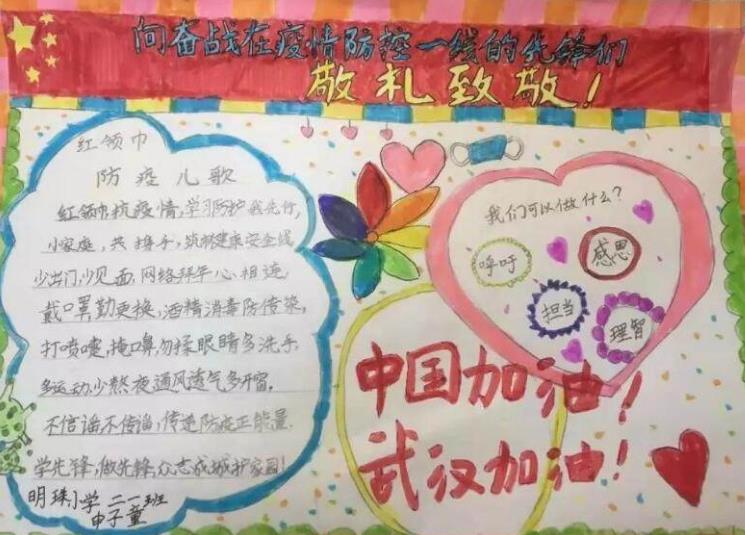 向奋战在疫情防控一线的先锋们
敬礼致敬!
红领巾
防疫儿歌
红领巾抗疫情,学习防护我先行,
小家庭,共携手,筑牢健康安全线
少出门,少见面,网络拜年心相连
戴口罩,勤更换,酒精消毒防传染,
打喷嚏,掩口鼻,勿揉眼睛多洗手,
多运动,少熬夜,通风透气多开窗,
不信谣不传谣,传递防疫正能量
学先锋,做先锋,众志成城护家园!
明珠小学 二一班
申子童
我们可以做什么?
呼吁
感恩
担当
理智
中国加油!
武汉加油!